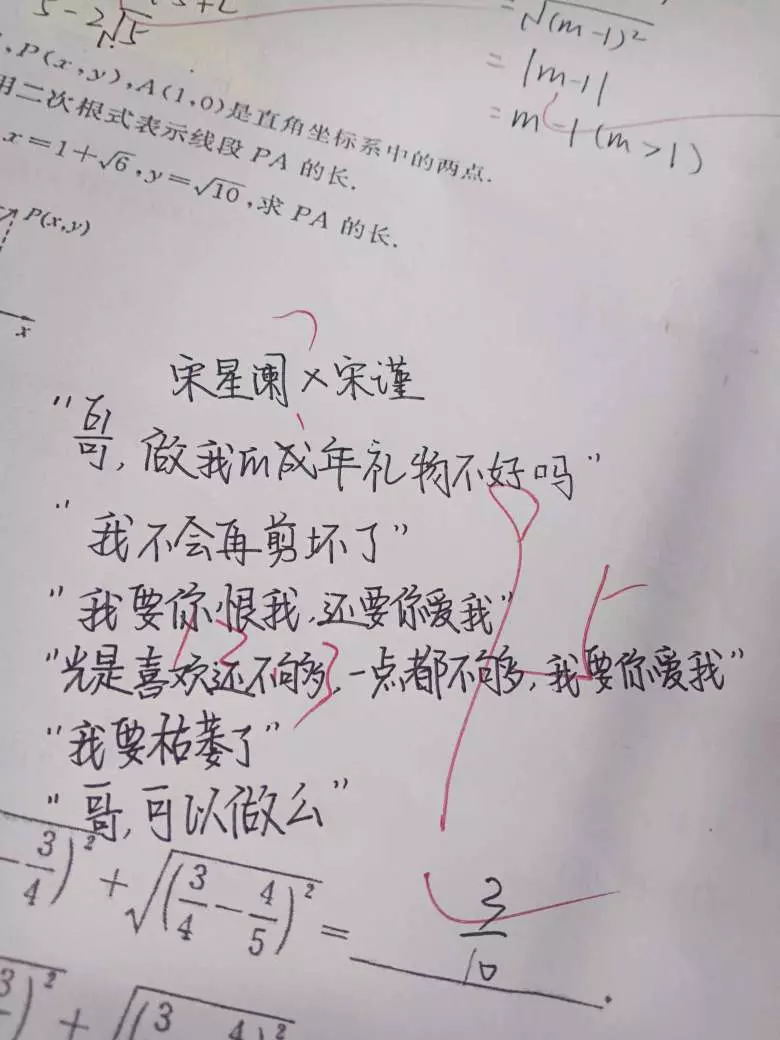 5-2√5
=√(m-1)²
=|m-1|
=m-1(m>1)
,P(x,y),A(1,0)是直角坐标系中的两点.
用二次根式表示线段PA的长.
x=1+√6,y=√10,求PA的长.
P(x,y)
x
宋星阑×宋谨
“哥,做我的成年礼物不好吗”
“我不会再剪坏了”
“我要你恨我,还要你爱我”
“光是喜欢还不够,一点都不够,我要你爱我”
“我要枯萎了”
“哥,可以做么”
-3/4)²+√(3/4-4/5)²=3/10.
3)²+√(3 4)²